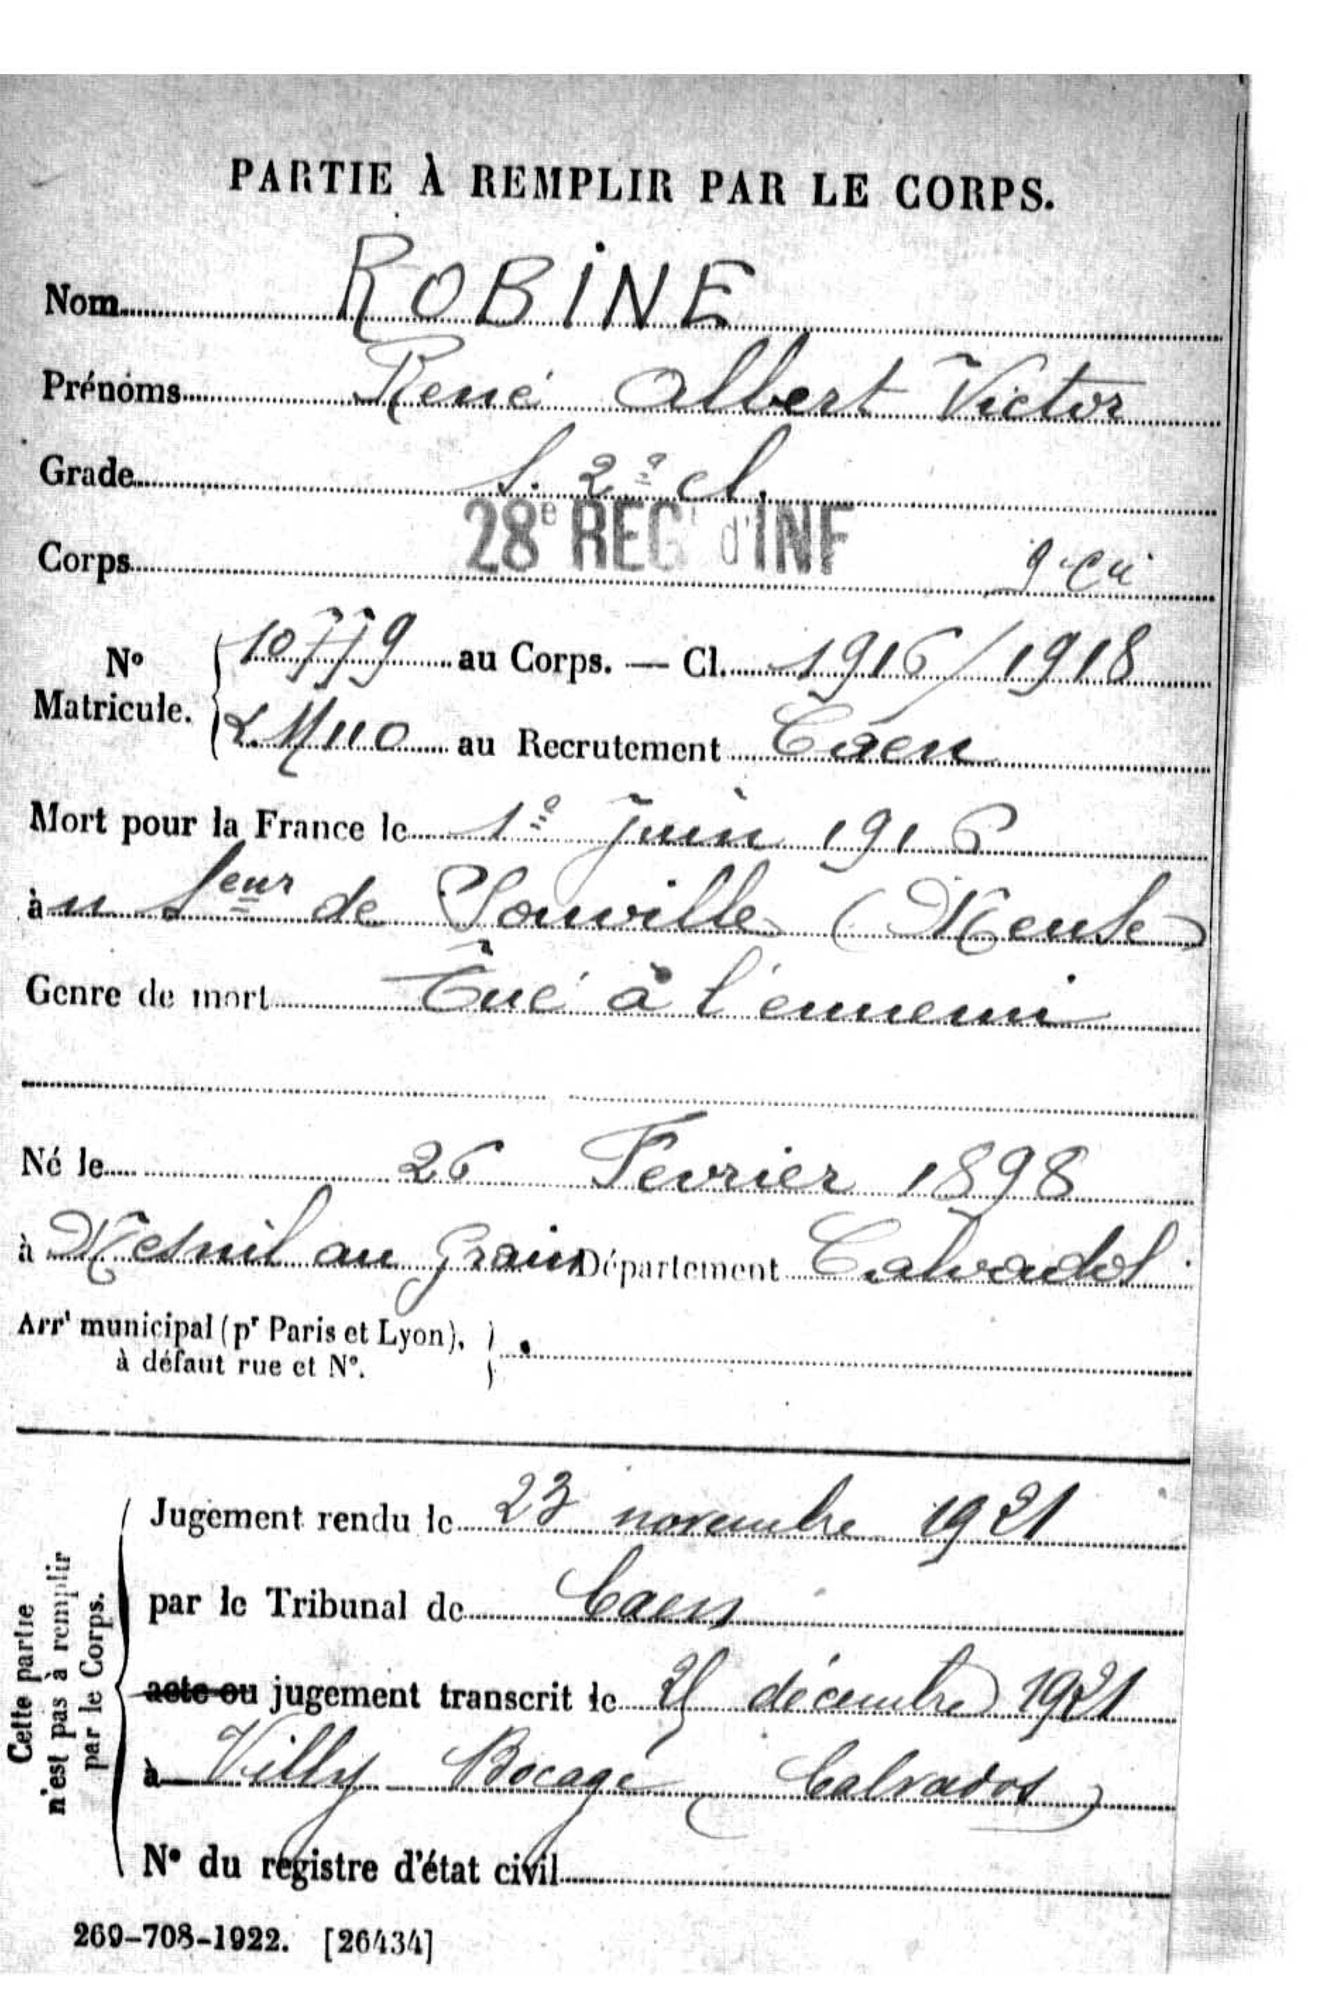 PARTIE À REMPLIR PAR LE CORPS.
Nom ROBINE
Prénoms René Albert Victor
Grade S. 2e cl.
28e REGt d'INF
Corps 9e Cie
No Matricule. 10779 au Corps. — Cl. 1916/1918
LM110 au Recrutement Caen
Mort pour la France le 1e Juin 1916
à u Seur de (Meuse)
Genre de mort Tué à l'ennemi
Né le 26 Fevrier 1898
à Mesnil au Grain Département Calvados
Arrt municipal (pr Paris et Lyon),
à défaut rue et No.
Cette partie
n'est pas à remplir
par le Corps.
Jugement rendu le 23 novembre 1921
par le Tribunal de Caen
acte ou jugement transcrit le décembre 1921
à Villy Bocage (Calvados)
No du registre d'état civil
269-708-1922. [26434]